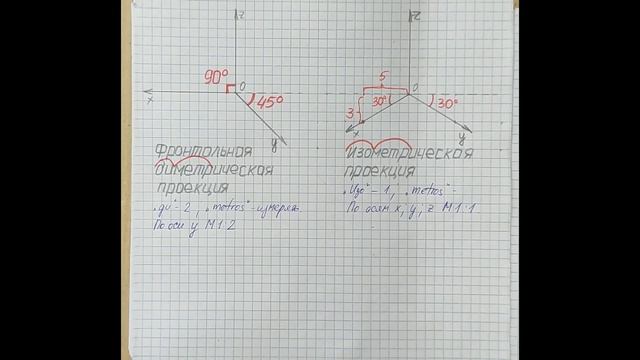 z
90°
0
45°
x
y
Фронтальная
диметрическая
проекция
"ди"- 2, "metros"-измеряю
По оси y М1:2
z
5
0
3
30°
30°
x
y
Изометрическая
проекция
"Изо"- 1, "metros"-
По осям x; y; z М1:1